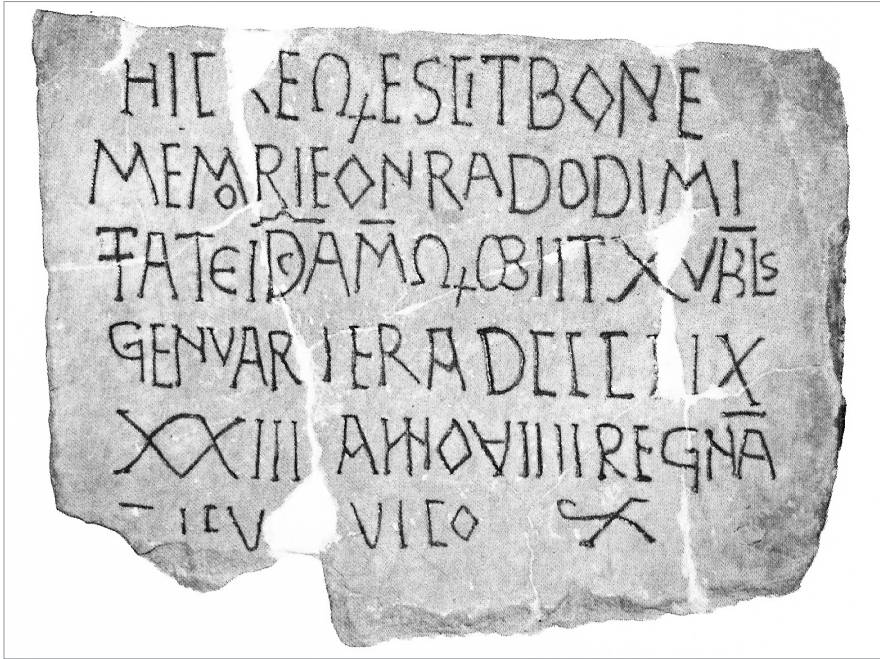 HIC EΩESCIT BONE
MEMORIE ONRADO DIMI
TAT EI D̄ AM̄ Ω OBIIT XV KLS
GENVARI ERA DCCC
XXIII ANNO VIIII REGNĀ
VICO